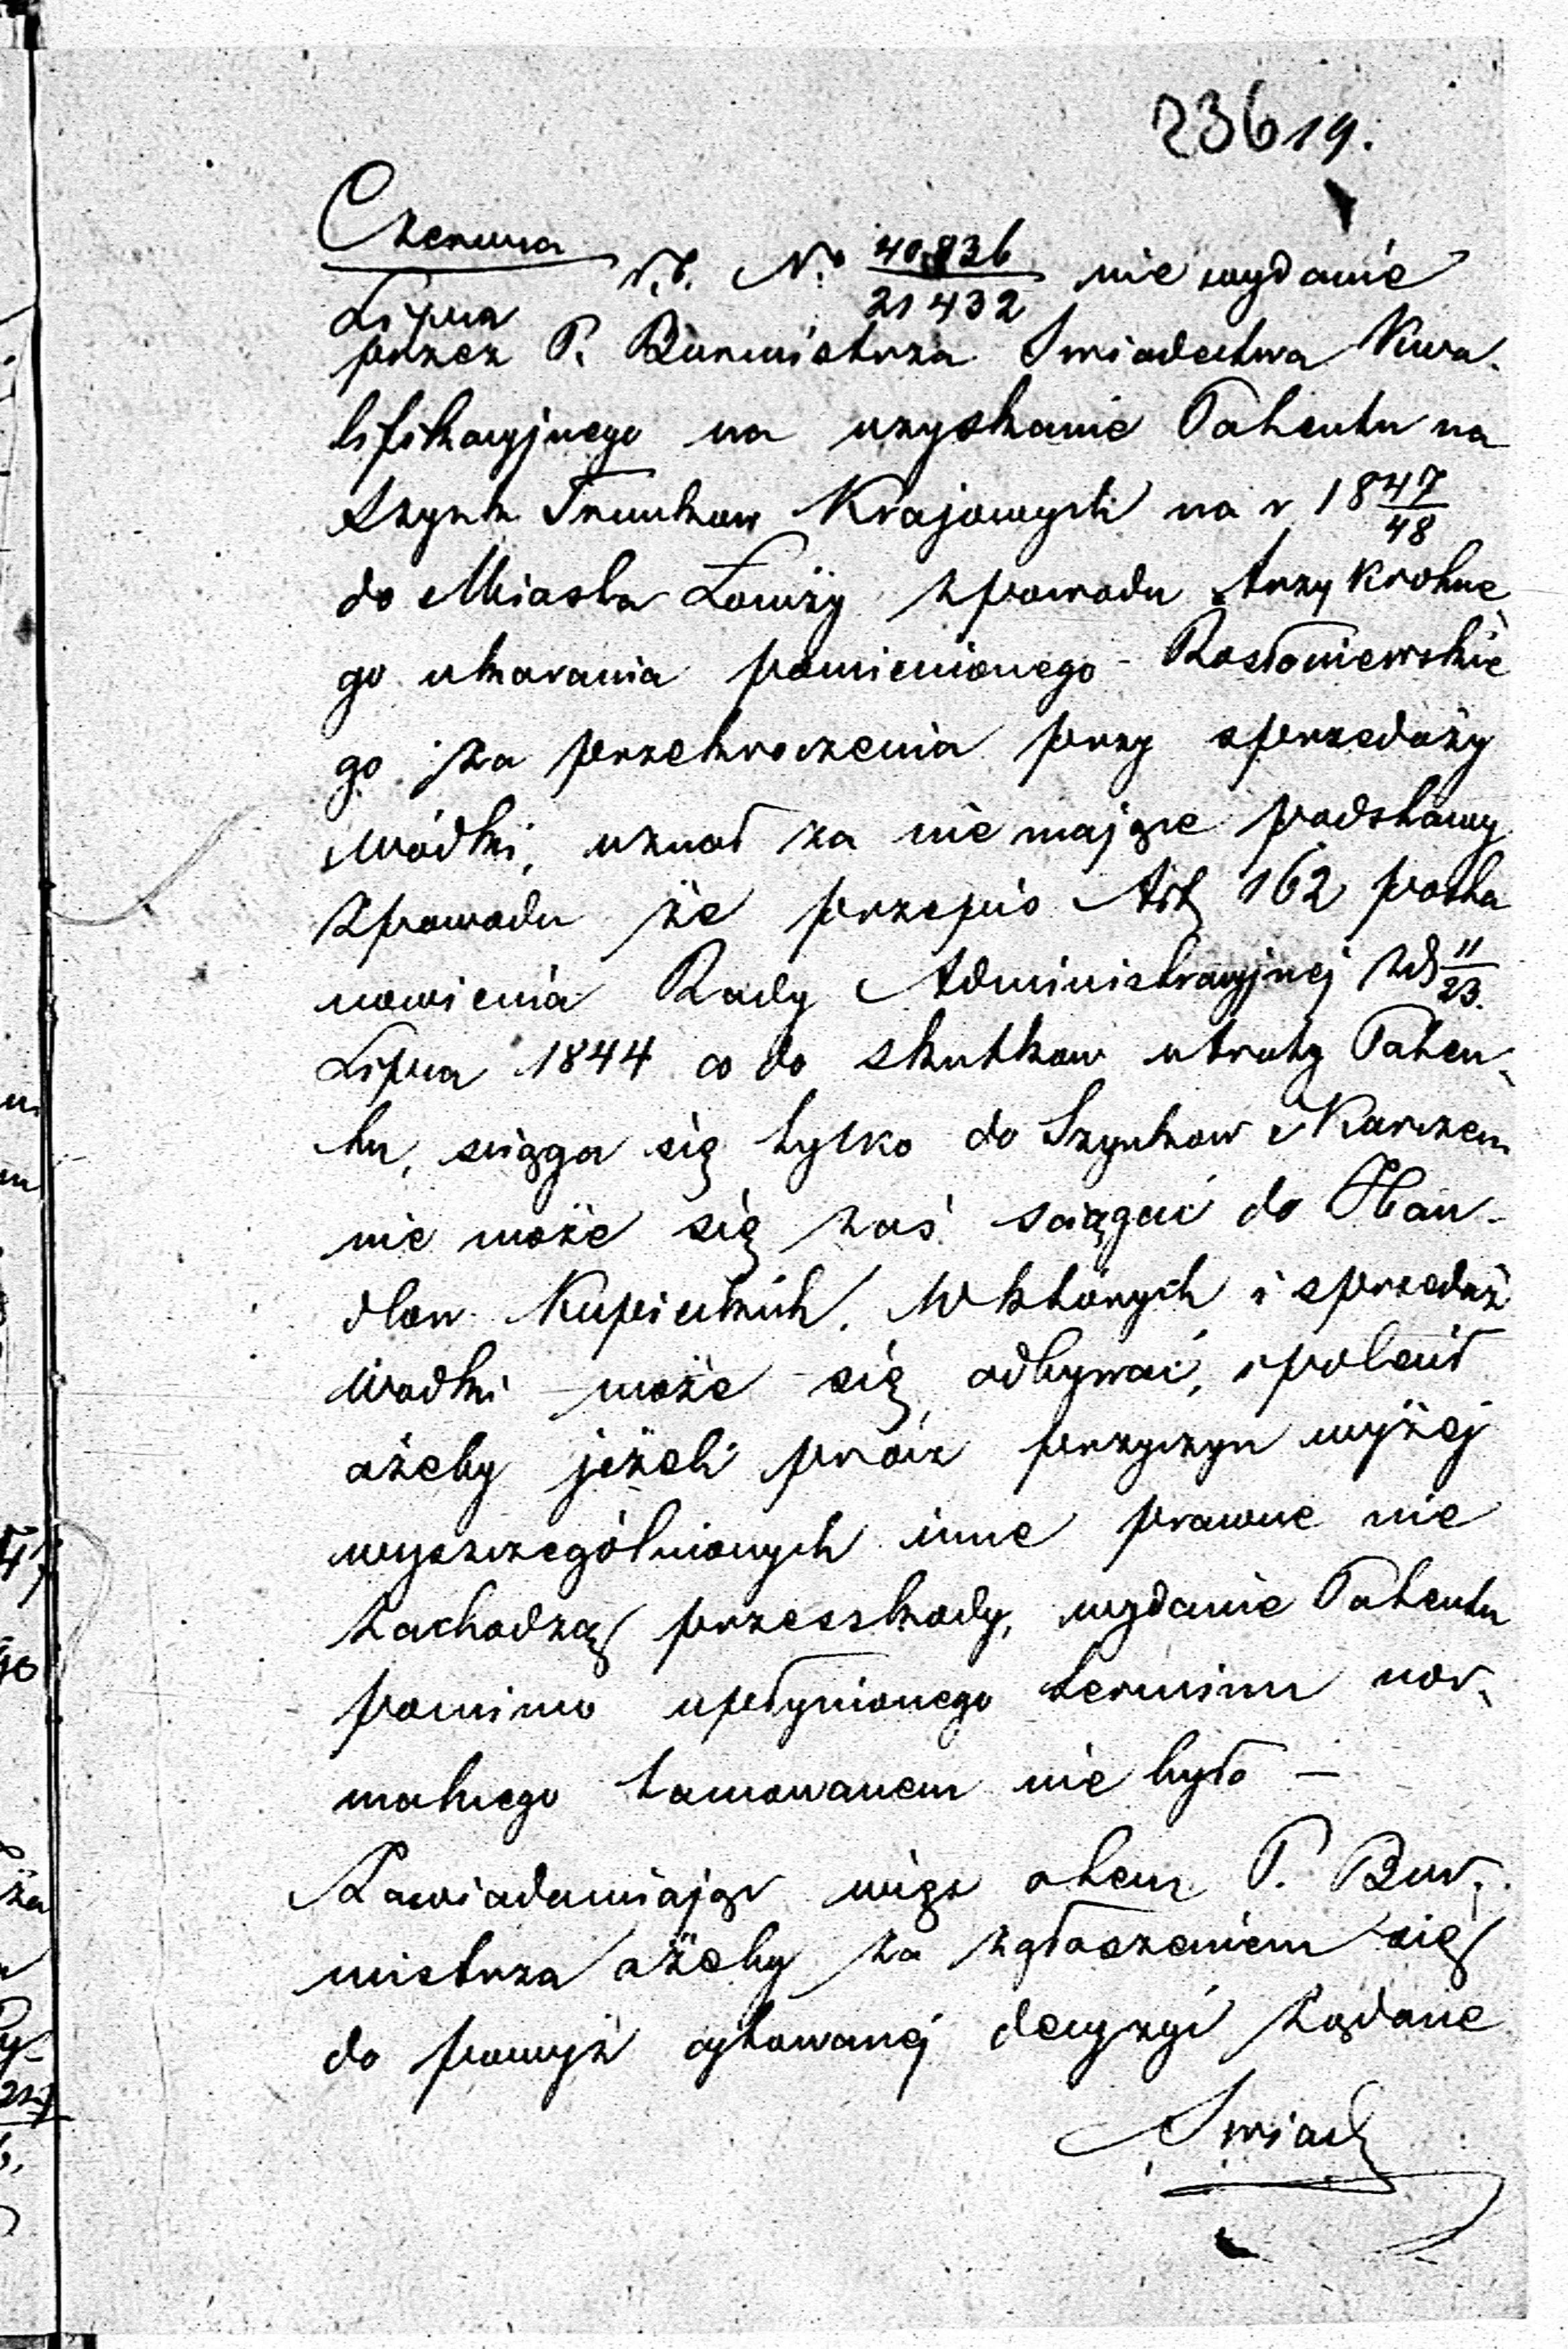 23619.
Czerwca
Lipca r. b. No 40,836/21432 nie wydanie
przez P. Burmistrza Swiadectwa Kwa-
lifikacyjnego na uzyskanie Patentu na
Szynk Trunkow Krajowych na r 1847/48
do Miasta Łomży zpowodu trzykrotne
go ukarania pomienionego - Rosłoniewskie
go za przekroczenia przy sprzedaży
wódki, uznał za nie mające podstawy
zpowodu że przepis Art 162 posta
nowienia Rady Administracyjnej zd 11/23.
Lipca 1844 co do skutkow utraty Paten-
tu, sciąga się tylko do Szynkow i Karczem
nie może się zaś sciągać do Han-
dlow Kupieckich. W których i sprzedaż
wodki może się odbywać, i polecił
ażeby jeżeli prócz przyczyn wyżej
wyszczególnionych inne prawne nie
zachodzą przesskody, wydanie Patentu
pomimo upłynionego terminu nor-
malnego tamowanem nie było —
Zawiadamiając więc otem P. Bur-
mistrza ażeby za zgłoszeniem się
do powyż cytowanej decyzyi żądane
Swiad